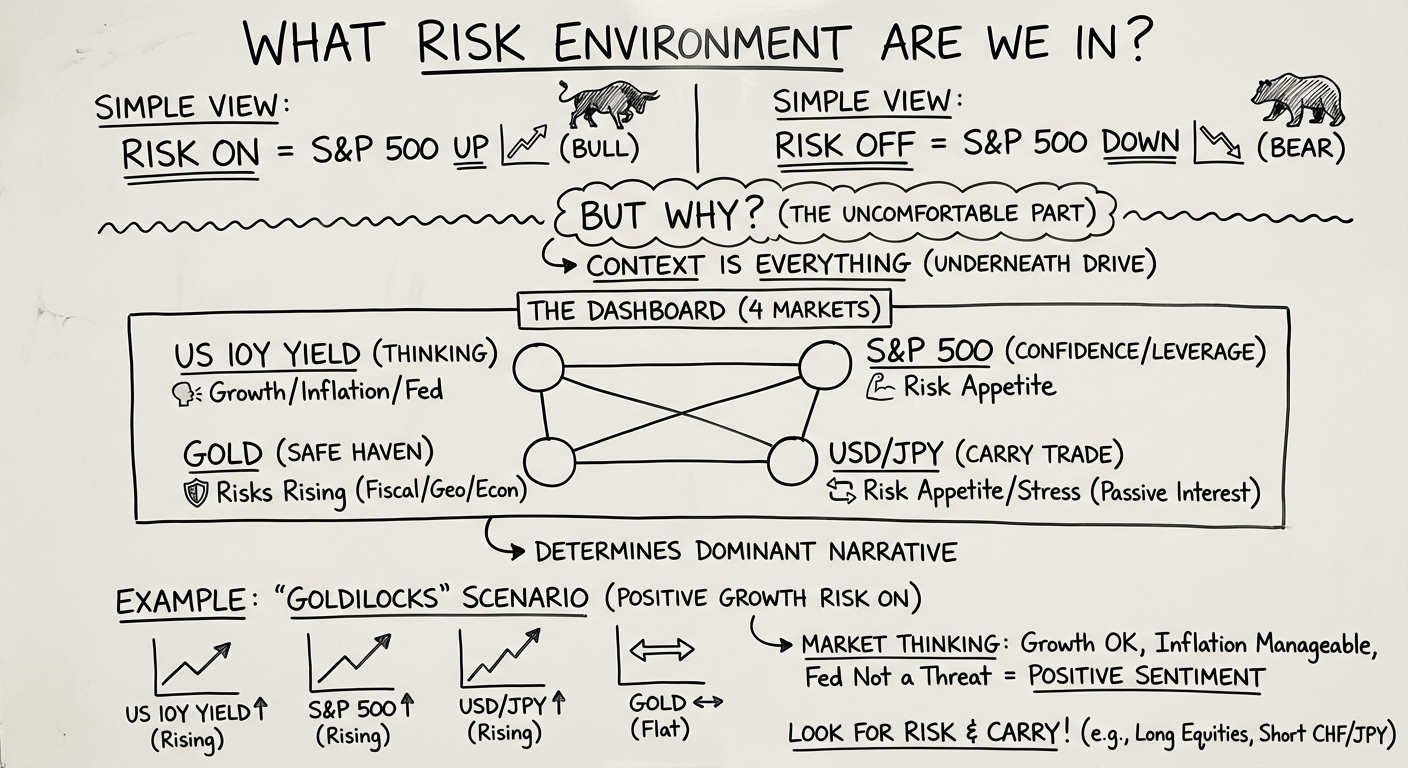 WHAT RISK ENVIRONMENT ARE WE IN?
SIMPLE VIEW:
RISK ON = S&P 500 UP (BULL)
SIMPLE VIEW:
RISK OFF = S&P 500 DOWN (BEAR)
BUT WHY? (THE UNCOMFORTABLE PART)
CONTEXT IS EVERYTHING (UNDERNEATH DRIVE)
THE DASHBOARD (4 MARKETS)
US 10Y YIELD (THINKING)
Growth/Inflation/Fed
S&P 500 (CONFIDENCE/LEVERAGE)
Risk Appetite
GOLD (SAFE HAVEN)
Risks Rising (Fiscal/Geo/Econ)
USD/JPY (CARRY TRADE)
Risk Appetite/Stress (Passive Interest)
DETERMINES DOMINANT NARRATIVE
EXAMPLE: "GOLDILOCKS" SCENARIO (POSITIVE GROWTH RISK ON)
US 10Y YIELD ↑
(Rising)
S&P 500 ↑
(Rising)
USD/JPY ↑
(Rising)
GOLD ↔
(Flat)
MARKET THINKING: Growth OK, Inflation Manageable,
Fed Not a Threat = POSITIVE SENTIMENT
LOOK FOR RISK & CARRY! (e.g., Long Equities, Short CHF/JPY)